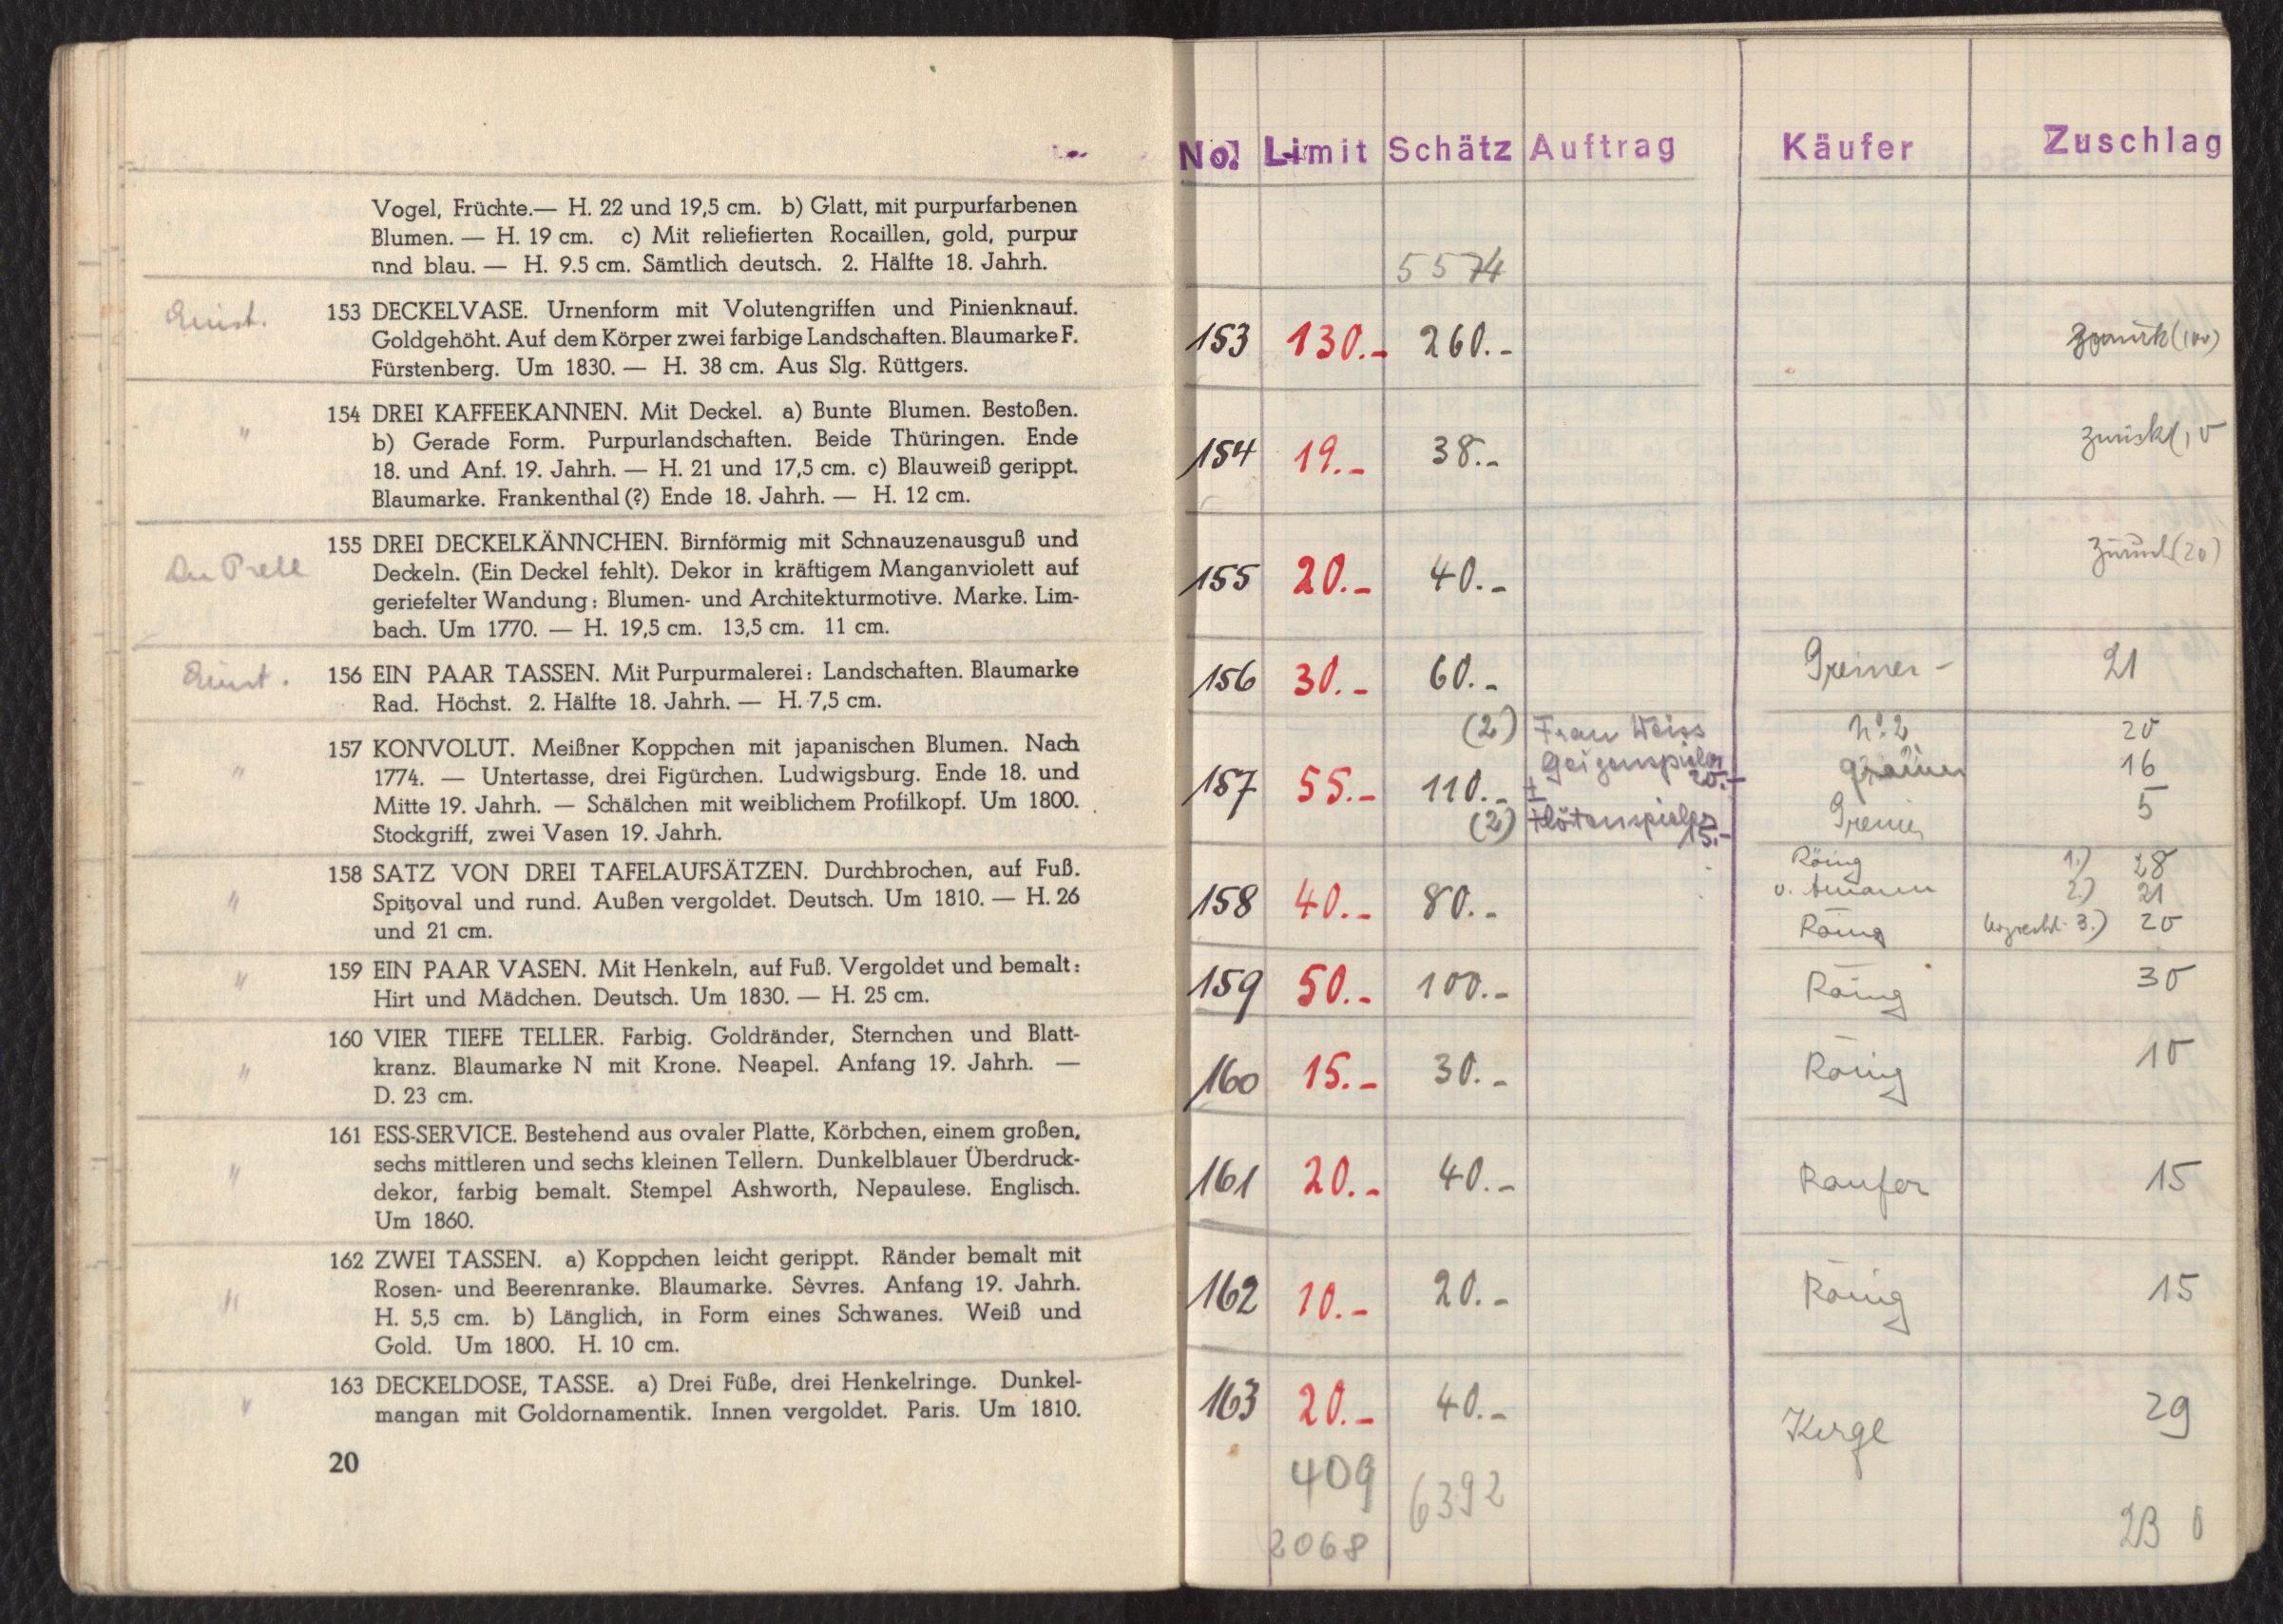 Vogel, Früchte.— H. 22 und 19,5 cm. b) Glatt, mit purpurfarbenen
Blumen. — H. 19 cm. c) Mit reliefierten Rocaillen, gold, purpur
nnd blau. — H. 9.5 cm. Sämtlich deutsch. 2. Hälfte 18. Jahrh.
153 DECKELVASE. Urnenform mit Volutengriffen und Pinienknauf.
Goldgehöht. Auf dem Körper zwei farbige Landschaften. Blaumarke F.
Fürstenberg. Um 1830. — H. 38 cm. Aus Slg. Rüttgers.
" 154 DREI KAFFEEKANNEN. Mit Deckel. a) Bunte Blumen. Bestoßen.
b) Gerade Form. Purpurlandschaften. Beide Thüringen. Ende
18. und Anf. 19. Jahrh. — H. 21 und 17,5 cm. c) Blauweiß gerippt.
Blaumarke. Frankenthal (?) Ende 18. Jahrh. — H. 12 cm.
155 DREI DECKELKÄNNCHEN. Birnförmig mit Schnauzenausguß und
Deckeln. (Ein Deckel fehlt). Dekor in kräftigem Manganviolett auf
geriefelter Wandung: Blumen- und Architekturmotive. Marke. Lim-
bach. Um 1770. — H. 19,5 cm. 13,5 cm. 11 cm.
156 EIN PAAR TASSEN. Mit Purpurmalerei: Landschaften. Blaumarke
Rad. Höchst. 2. Hälfte 18. Jahrh. — H. 7,5 cm.
" 157 KONVOLUT. Meißner Koppchen mit japanischen Blumen. Nach
1774. — Untertasse, drei Figürchen. Ludwigsburg. Ende 18. und
Mitte 19. Jahrh. — Schälchen mit weiblichem Profilkopf. Um 1800.
Stockgriff, zwei Vasen 19. Jahrh.
" 158 SATZ VON DREI TAFELAUFSÄTZEN. Durchbrochen, auf Fuß.
Spitzoval und rund. Außen vergoldet. Deutsch. Um 1810. — H. 26
und 21 cm.
" 159 EIN PAAR VASEN. Mit Henkeln, auf Fuß. Vergoldet und bemalt:
Hirt und Mädchen. Deutsch. Um 1830. — H. 25 cm.
" 160 VIER TIEFE TELLER. Farbig. Goldränder, Sternchen und Blatt-
kranz. Blaumarke N mit Krone. Neapel. Anfang 19. Jahrh. —
D. 23 cm.
" 161 ESS-SERVICE. Bestehend aus ovaler Platte, Körbchen, einem großen,
sechs mittleren und sechs kleinen Tellern. Dunkelblauer Überdruck-
dekor, farbig bemalt. Stempel Ashworth, Nepaulese. Englisch.
Um 1860.
" 162 ZWEI TASSEN. a) Koppchen leicht gerippt. Ränder bemalt mit
Rosen- und Beerenranke. Blaumarke. Sèvres. Anfang 19. Jahrh.
H. 5,5 cm. b) Länglich, in Form eines Schwanes. Weiß und
Gold. Um 1800. H. 10 cm.
" 163 DECKELDOSE, TASSE. a) Drei Füße, drei Henkelringe. Dunkel-
mangan mit Goldornamentik. Innen vergoldet. Paris. Um 1810.
20
No. Limit Schätz Auftrag Käufer Zuschlag
5574
153 130.- 260.- (100)
154 19.- 38.- zurück
155 20.- 40.- zurück (20)
156 30.- 60.- Greiner - 21
(2) Frau Weiss No 2 20
Geigenspieler 20.- Greiner 16
157 55.- 110.- +
(2) Flötenspieler 15.- Greiner 5
Rönig 1.) 28
158 40.- 80.- v. 2.) 21
Rönig 3.) 20
159 50.- 100.- Rönig 30
160 15.- 30.- Rönig 10
161 20.- 40.- 15
162 10.- 20.- Rönig 15
163 20.- 40.- 29
409 6392
2068